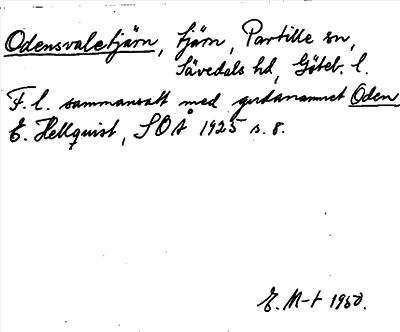 Odensvaletjärn, tjärn, Partille sn,
Sävedals hd, Göteb. l.
F. l. sammansatt med gudanamnet Oden
E. Hellquist, SOÅ 1925 s. 8.
E. M-t 1950.